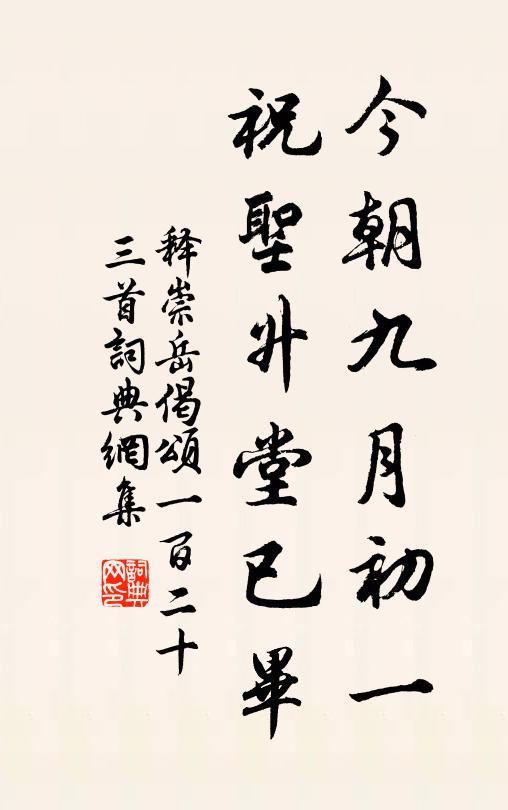 今朝九月初一
祝聖升堂已畢
释崇岳偈頌一百二十
三首詞典網集
詞典网印